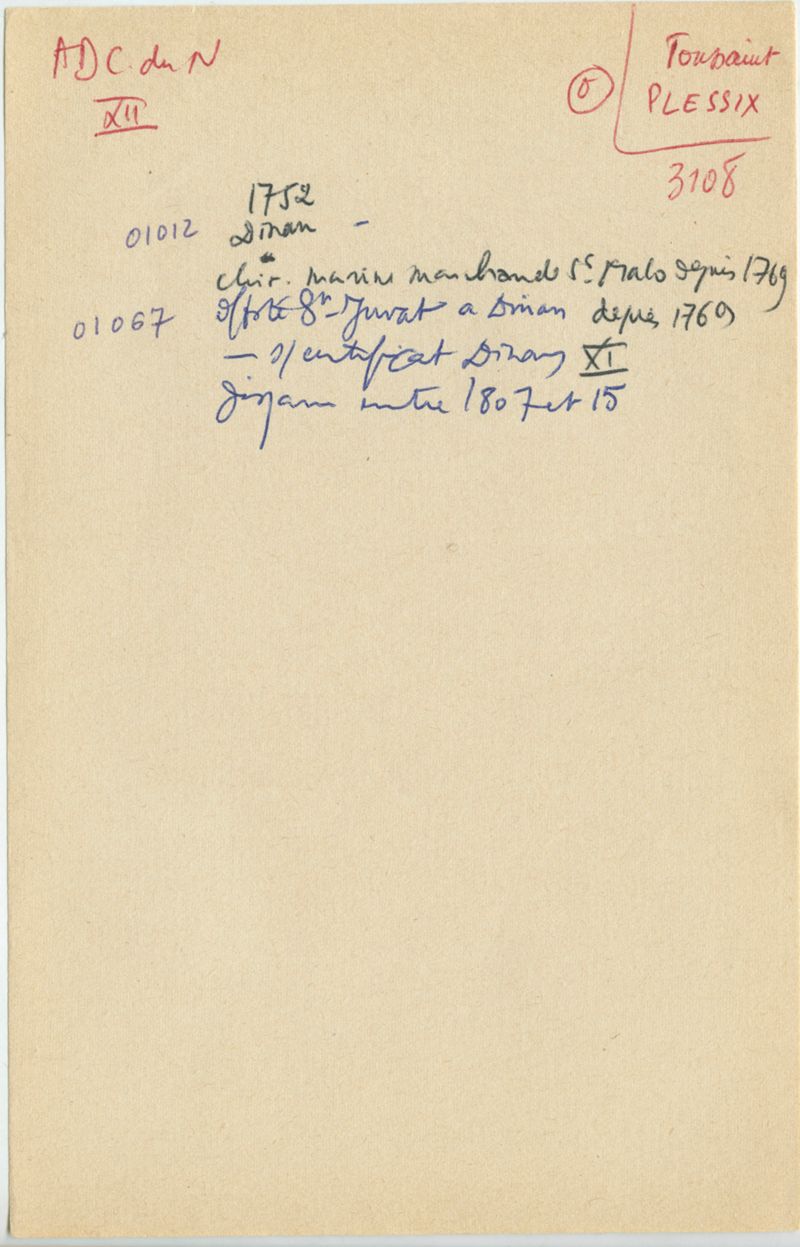 ADC. du N
XII
Toussaint
PLESSIX
3108
1752
01012 Dinan -
chir. marine marchande St Malo depuis 1769
01067 St-Juvat a Dinan depuis 1769
— s/ certificat Dinan XI
disparu entre 1807 et 15